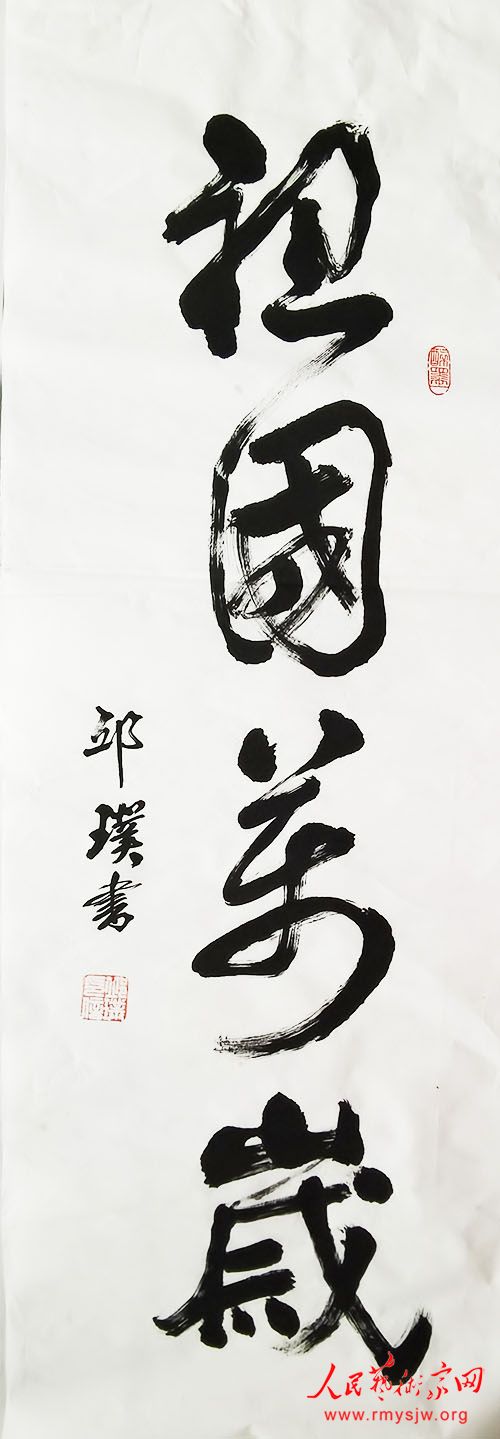 祖國萬歲
邱璞書
人民藝術家网
www.rmysjw.org